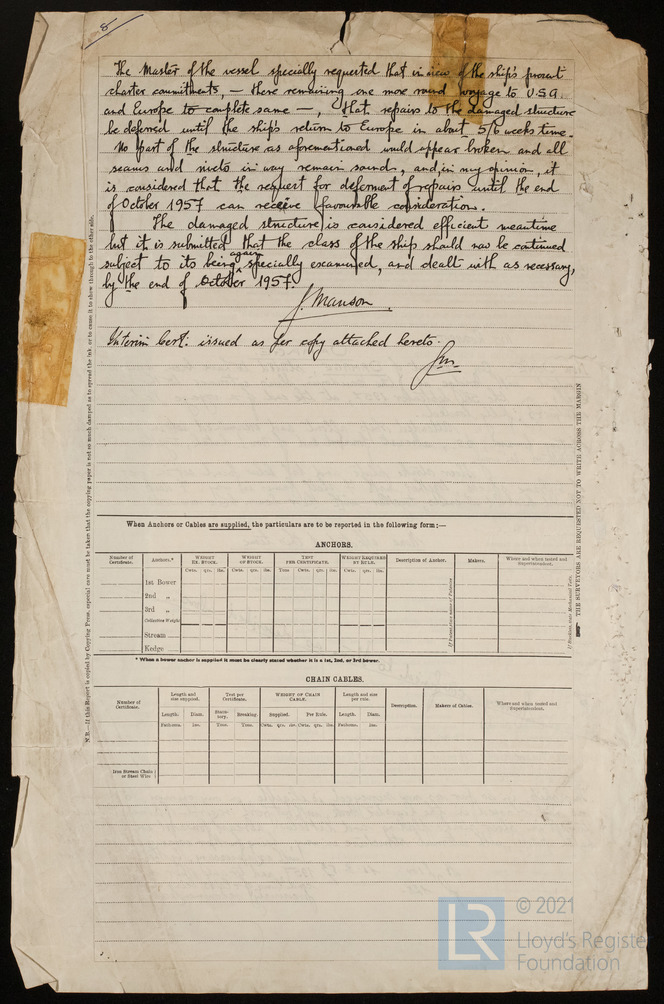 8
The Master of the vessel specially requested that in view of the ship's present
charter commitments, — there remaining one more round voyage to U.S.A.
and Europe to complete same —, that repairs to the damaged structure
be deferred until the ship's return to Europe in about 5/6 weeks time.
No part of the structure as aforementioned would appear broken and all
seams and rivets in way remain sound, and, in my opinion, it
is considered that the request for deferment of repairs until the end
of October 1957 can receive favourable consideration.
The damaged structure is considered efficient meantime
but it is submitted that the class of the ship should now be continued
subject to its being again specially examined, and dealt with as necessary,
by the end of October 1957.
J. Manson
Interim Cert: issued as per copy attached hereto.
Jm.
N.B.—If this Report is copied by Copying Press, especial care must be taken that the copying paper is not so much damped as to spread the ink, or to cause it to show through to the other side.
THE SURVEYORS ARE REQUESTED NOT TO WRITE ACROSS THE MARGIN
When Anchors or Cables are supplied, the particulars are to be reported in the following form:—
ANCHORS.
Number of Certificate. Anchors.* WEIGHT EX. STOCK. WEIGHT OF STOCK. TEST PER CERTIFICATE. WEIGHT REQUIRED BY RULE. Description of Anchor. Makers. Where and when tested and Superintendent.
Cwts. qrs. lbs. Cwts. qrs. lbs. Tons Cwts. qrs. lbs. Cwts. qrs. lbs.
1st Bower
2nd „
3rd „
Collective Weight
Stream
Kedge
* When a bower anchor is supplied it must be clearly stated whether it is a 1st, 2nd, or 3rd bower.
CHAIN CABLES.
Number of Certificate. Length and size supplied. Test per Certificate. WEIGHT OF CHAIN CABLE. Length and size per rule. Description. Makers of Cables. Where and when tested and Superintendent.
Length. Diam. Statutory. Breaking. Supplied. Per Rule. Length. Diam.
Fathoms. Ins. Tons. Tons. Cwts. qrs. lbs. Cwts. qrs. lbs. Fathoms. Ins.
Iron Stream Chain or Steel Wire
LR
© 2021
Lloyd's Register
Foundation